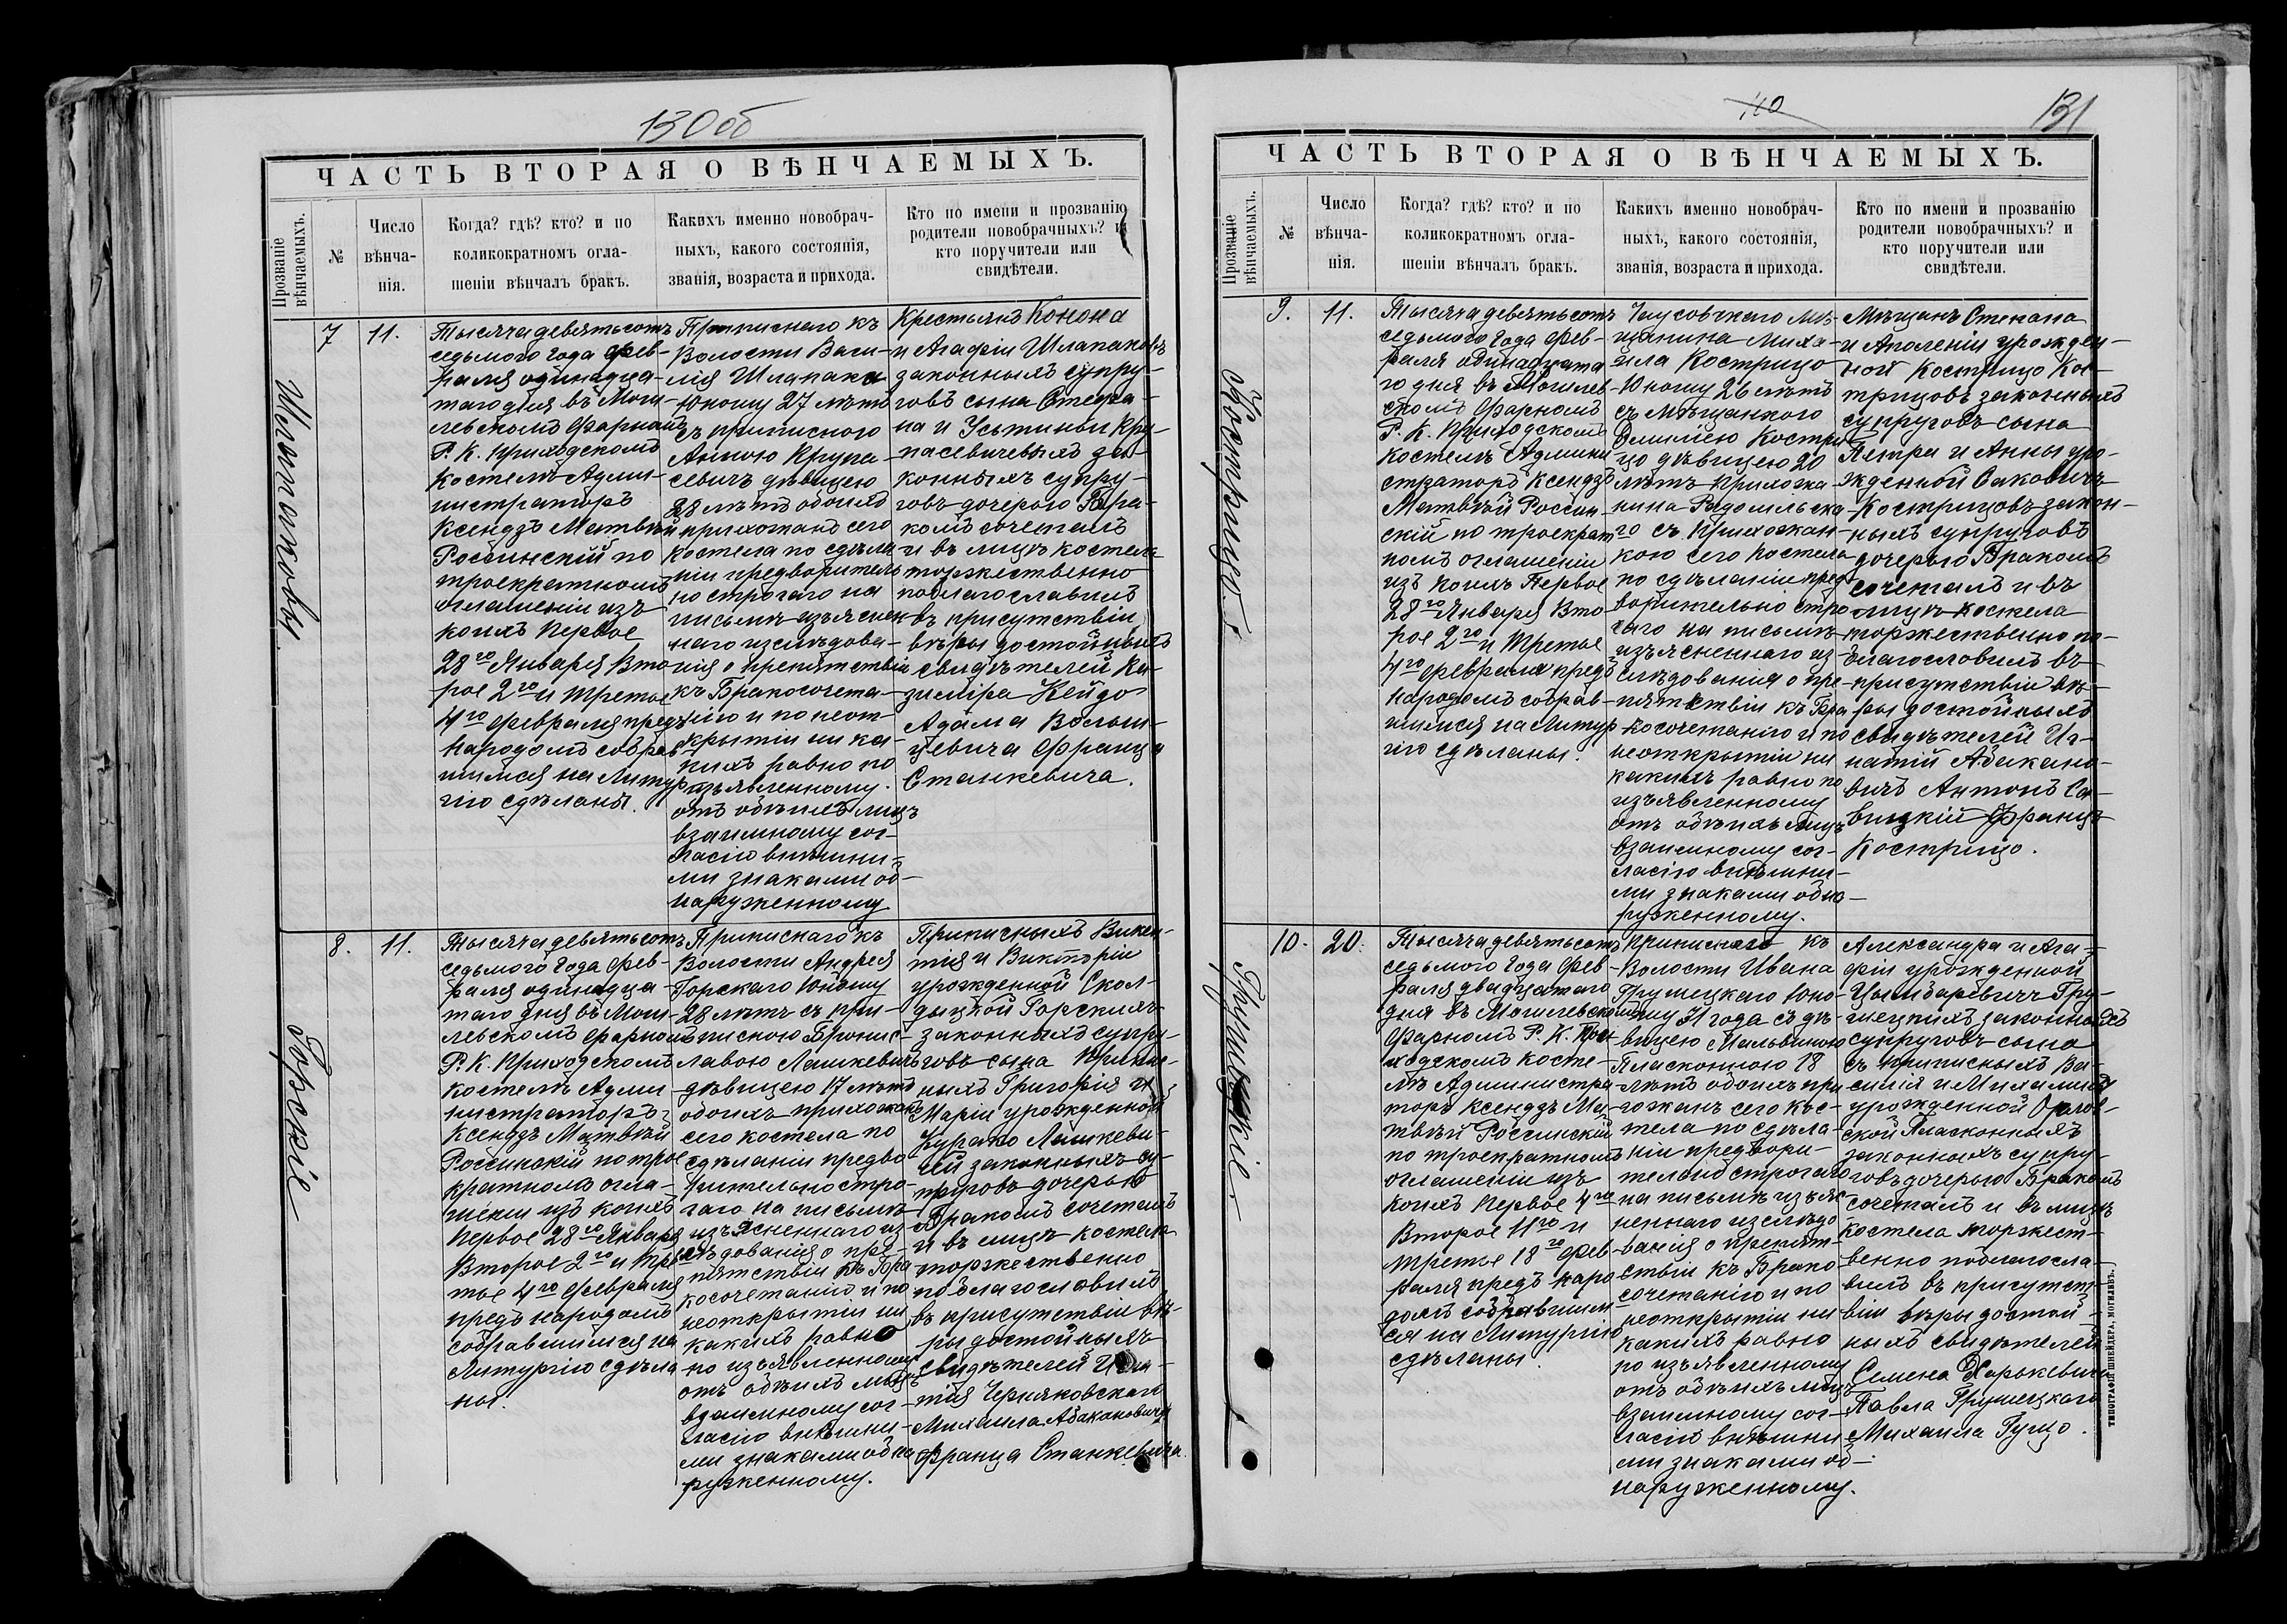 130об
ЧАСТЬ ВТОРАЯ О ВѢНЧАЕМЫХЪ.
Прозваніе вѣнчаемыхъ.
№
Число
вѣнча-
нія.
Когда? гдѣ? кто? и по
коликократномъ огла-
шеніи вѣнчалъ бракъ.
Какихъ именно новобрач-
ныхъ, какого состоянія,
званія, возраста и прихода.
Кто по имени и прозванію
родители новобрачныхъ? и
кто поручители или
свидѣтели.
7
11.
Тысяча девятьсотъ
седьмого года Фев-
раля одинадца-
таго дня въ Моги-
левскомъ Фарномъ
Р. К. Приходскомъ
Костелѣ Адми-
нистраторъ
Ксендзъ Матвѣй
Россинскій по
троекратномъ
оглашеніи изъ
коихъ первое
28го Января Вто-
рое 2го и третье
4го Февраля предъ
народомъ собрав-
шимся на Литур-
гію сдѣланы.
Приписнаго къ
Волости Васи-
лія Шлапака
Юношу 27 лѣтъ
съ приписного
Анною Крупа-
севичъ дѣвицею
28 лѣтъ обоихъ
прихожанъ сего
Костела по сдѣла-
ніи предваритель-
но строгаго на
письмѣ изъяснен-
наго изслѣдова-
нія о препятствіи
къ Бракосочета-
нію и по неот-
крытіи ни ка-
кихъ равно по
изъявленному
отъ обѣихъ лицъ
взаимному сог-
ласію внѣшни-
ми знаками об-
наруженному
Крестьянъ Конона
и Агафіи Шлапаковъ
законныхъ супру-
говъ сына Стефа-
на и Устиньи Кру-
пасевичевыхъ за-
конныхъ супру-
говъ дочерью Бра-
комъ сочеталъ
и въ лицѣ костела
торжественно
поблагославилъ
въ присутствіи
вѣры достойныхъ
свидѣтелей Ка-
зиміра Кейдо
Адама Волын-
цевича Франца
Станкевича.
8.
11.
Горскіе
Тысяча девятьсотъ
седьмого года Фев-
раля одинадца-
таго дня въ Моги-
левскомъ Фарномъ
Р. К. Приходскомъ
Костелѣ Адми-
нистраторъ
Ксендзъ Матвѣй
Россинскій по трое-
кратномъ огла-
шеніи изъ коихъ
первое 28го Января
Второе 2го и тре-
тье 4го Февраля
предъ народомъ
собравшимся на
Литургію сдѣла-
ны.
Приписнаго къ
Волости Андрея
Горскаго Юношу
28 лѣтъ съ при-
писною Бронис-
лавою Лашкевичъ
дѣвицею 17 лѣтъ
обоихъ прихожанъ
сего костела по
сдѣланіи предва-
рительно стро-
гаго на письмѣ
изъясненнаго из-
слѣдованія о пре-
пятствіи къ Бра-
косочетанію и по
неоткрытіи ни
какихъ равно
по изъявленному
отъ обѣихъ лицъ
взаимному сог-
ласію внѣшни-
ми знаками обна-
руженному.
Приписныхъ Викен-
тія и Викторіи
урожденной Скол-
дыцкой Горскихъ
законныхъ супру-
говъ сына Припис-
ныхъ Григорія и
Маріи урожденной
Курако Лашкеви-
чей законныхъ су-
пруговъ дочерью
Бракомъ сочеталъ
и въ лицѣ костела
торжественно
поблагословилъ
въ присутствіи вѣ-
ры достойныхъ
свидѣтелей Игна-
тія Черняковскаго
Михаила Абакановича
Франца Станкевича.
110
131
ЧАСТЬ ВТОРАЯ О ВѢНЧАЕМЫХЪ.
Прозваніе вѣнчаемыхъ.
№
Число
вѣнча-
нія.
Когда? гдѣ? кто? и по
коликократномъ огла-
шеніи вѣнчалъ бракъ.
Какихъ именно новобрач-
ныхъ, какого состоянія,
званія, возраста и прихода.
Кто по имени и прозванію
родители новобрачныхъ? и
кто поручители или
свидѣтели.
9.
11.
Тысяча девятьсотъ
седьмого года Фев-
раля одинадцата-
го дня въ Могилев-
скомъ Фарномъ
Р. К. Приходскомъ
Костелѣ Админи-
страторъ Ксендзъ
Матвѣй Россин-
скій по троекрат-
номъ оглашеніи
изъ коихъ Первое
28го Января Вто-
рое 2го и Третье
4го Февраля предъ
народомъ собрав-
шимся на Литур-
гію сдѣланы.
Чаусовскаго мѣ-
щанина Миха-
ила Кострицо
Юношу 26 лѣтъ
съ Мѣщанкою
Эмиліею Костри-
цо дѣвицею 20
лѣтъ прихожа-
нина Радомльска-
го съ прихожан-
кою сего Костела
по сдѣланіи пред-
варительно стро-
гаго на письмѣ
изъясненнаго из-
слѣдованія о пре-
пятствіи къ Бра-
косочетанію и по
неоткрытіи ни
какихъ равно по
изъявленному
отъ обѣихъ лицъ
взаимному сог-
ласію внѣшни-
ми знаками обна-
руженному.
Мѣщанъ Степана
и Аполеніи урожден-
ной Кострицо Кос-
трицовъ законныхъ
супруговъ сына
Петра и Анны уро-
жденной Саковичъ
Кострицовъ закон-
ныхъ супруговъ
дочерью Бракомъ
сочеталъ и въ
лицѣ костела
торжественно по-
благословилъ въ
присутствіи вѣ-
ры достойныхъ
свидѣтелей Иг-
натій Абакано-
вичъ Антонъ Са-
вицкій Францъ
Кострицо.
10.
20.
Тысяча девятьсотъ
седьмого года Фев-
раля двадцатаго
дня въ Могилевскомъ
Фарномъ Р. К. При-
ходскомъ косте-
лѣ Администра-
торъ Ксендзъ Ма-
твѣй Россинскій
по троекратномъ
оглашеніи изъ
коихъ первое 4го
Второе 11го и
третье 18го Фев-
раля предъ наро-
домъ собравшим-
ся на Литургію
сдѣланы.
Приписнаго къ
Волости Ивана
Грушецкаго Юно-
шу 31 года съ дѣ-
вицею Мальвиною
Пласконною 18
лѣтъ обоихъ при-
хожанъ сего кос-
тела по сдѣла-
ніи предвори-
тельно строгаго
на письмѣ изъяс-
неннаго изслѣдо-
ванія о препят-
ствіи къ Брако-
сочетанію и по
неоткрытіи ни
какихъ равно
по изъявленному
отъ обѣихъ лицъ
взаимному сог-
ласію внѣшни-
ми знаками об-
наруженному.
Александра и Ага-
фіи урожденной
Цымбаревичъ Гру-
шецкихъ законныхъ
супруговъ сына
съ приписныхъ Ва-
силія и Михалины
урожденной Орлов-
ской Пласконныхъ
законныхъ супру-
говъ дочерью Бракомъ
сочеталъ и въ лицѣ
костела торжест-
венно поблагосла-
вилъ въ присутст-
віи вѣры достой-
ныхъ свидѣтелей
Семена Харькевича
Павла Грушецкаго
Михаила Гущо.
ТИПОГРАФІЯ ШНЕЙДЕРА, МОГИЛЕВЪ.